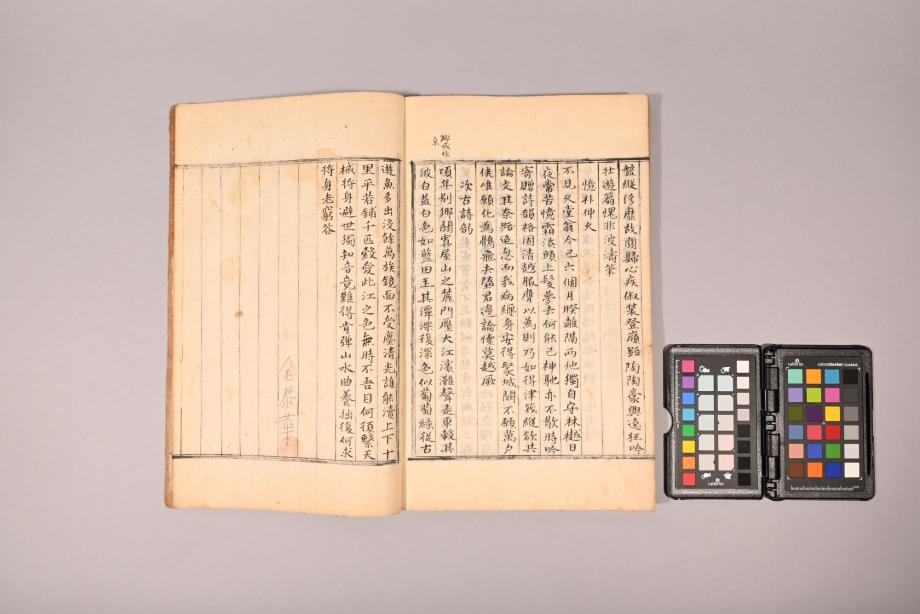 盤縱修靡故關歸心疾俶裝登嶺路陶陶豪興逸狂吟
壯遊篇愧非波濤筆
憶朴仲久
不見久堂翁今已六個月睽離隔兩地獨自守林樾日
夜常若憶霜添頭上髮夢去何能已神馳亦不歇時吟
寄贈詩韻格固清越服膺以為則乃如得津筏縱欲共
論文其奈路迢忽而我病纏身安得聚城闕不願萬戶
侯唯願化為鶻飛去陪君邊論懷莫越厥
次古詩韵
頃年別鄉關寄屋山之麓門壓大江濱灘聲走車轂其
波白益白色如藍田玉其潭深復深色似葡萄綠從古
鄉或作
京
遊魚多出沒餘萬族鏡面不受塵清光誰能瀆上下十
里平若鋪千匹縠愛此江之色無時不吾目何須繫天
械將身避世獨知音竟難得肯彈山水曲養拙復何求
將身老窮谷
金泰華
calibrite
colorchecker CLASSIC
calibrite